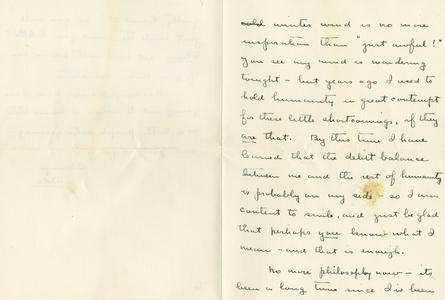 cold winter wind is no more
inspiration than "just awful!"
You see my mind is wandering
tonight - but years ago I used to
hold humanity in great contempt
for these little shortcomings, if they
are that. By this time I have
learned that the debit balance
between me and the rest of humanity
is probably on my side - so I am
content to smile, and just be glad
that perhaps you know what I
mean - and that is enough.
No more philosophy now - its
been a long time since I've been